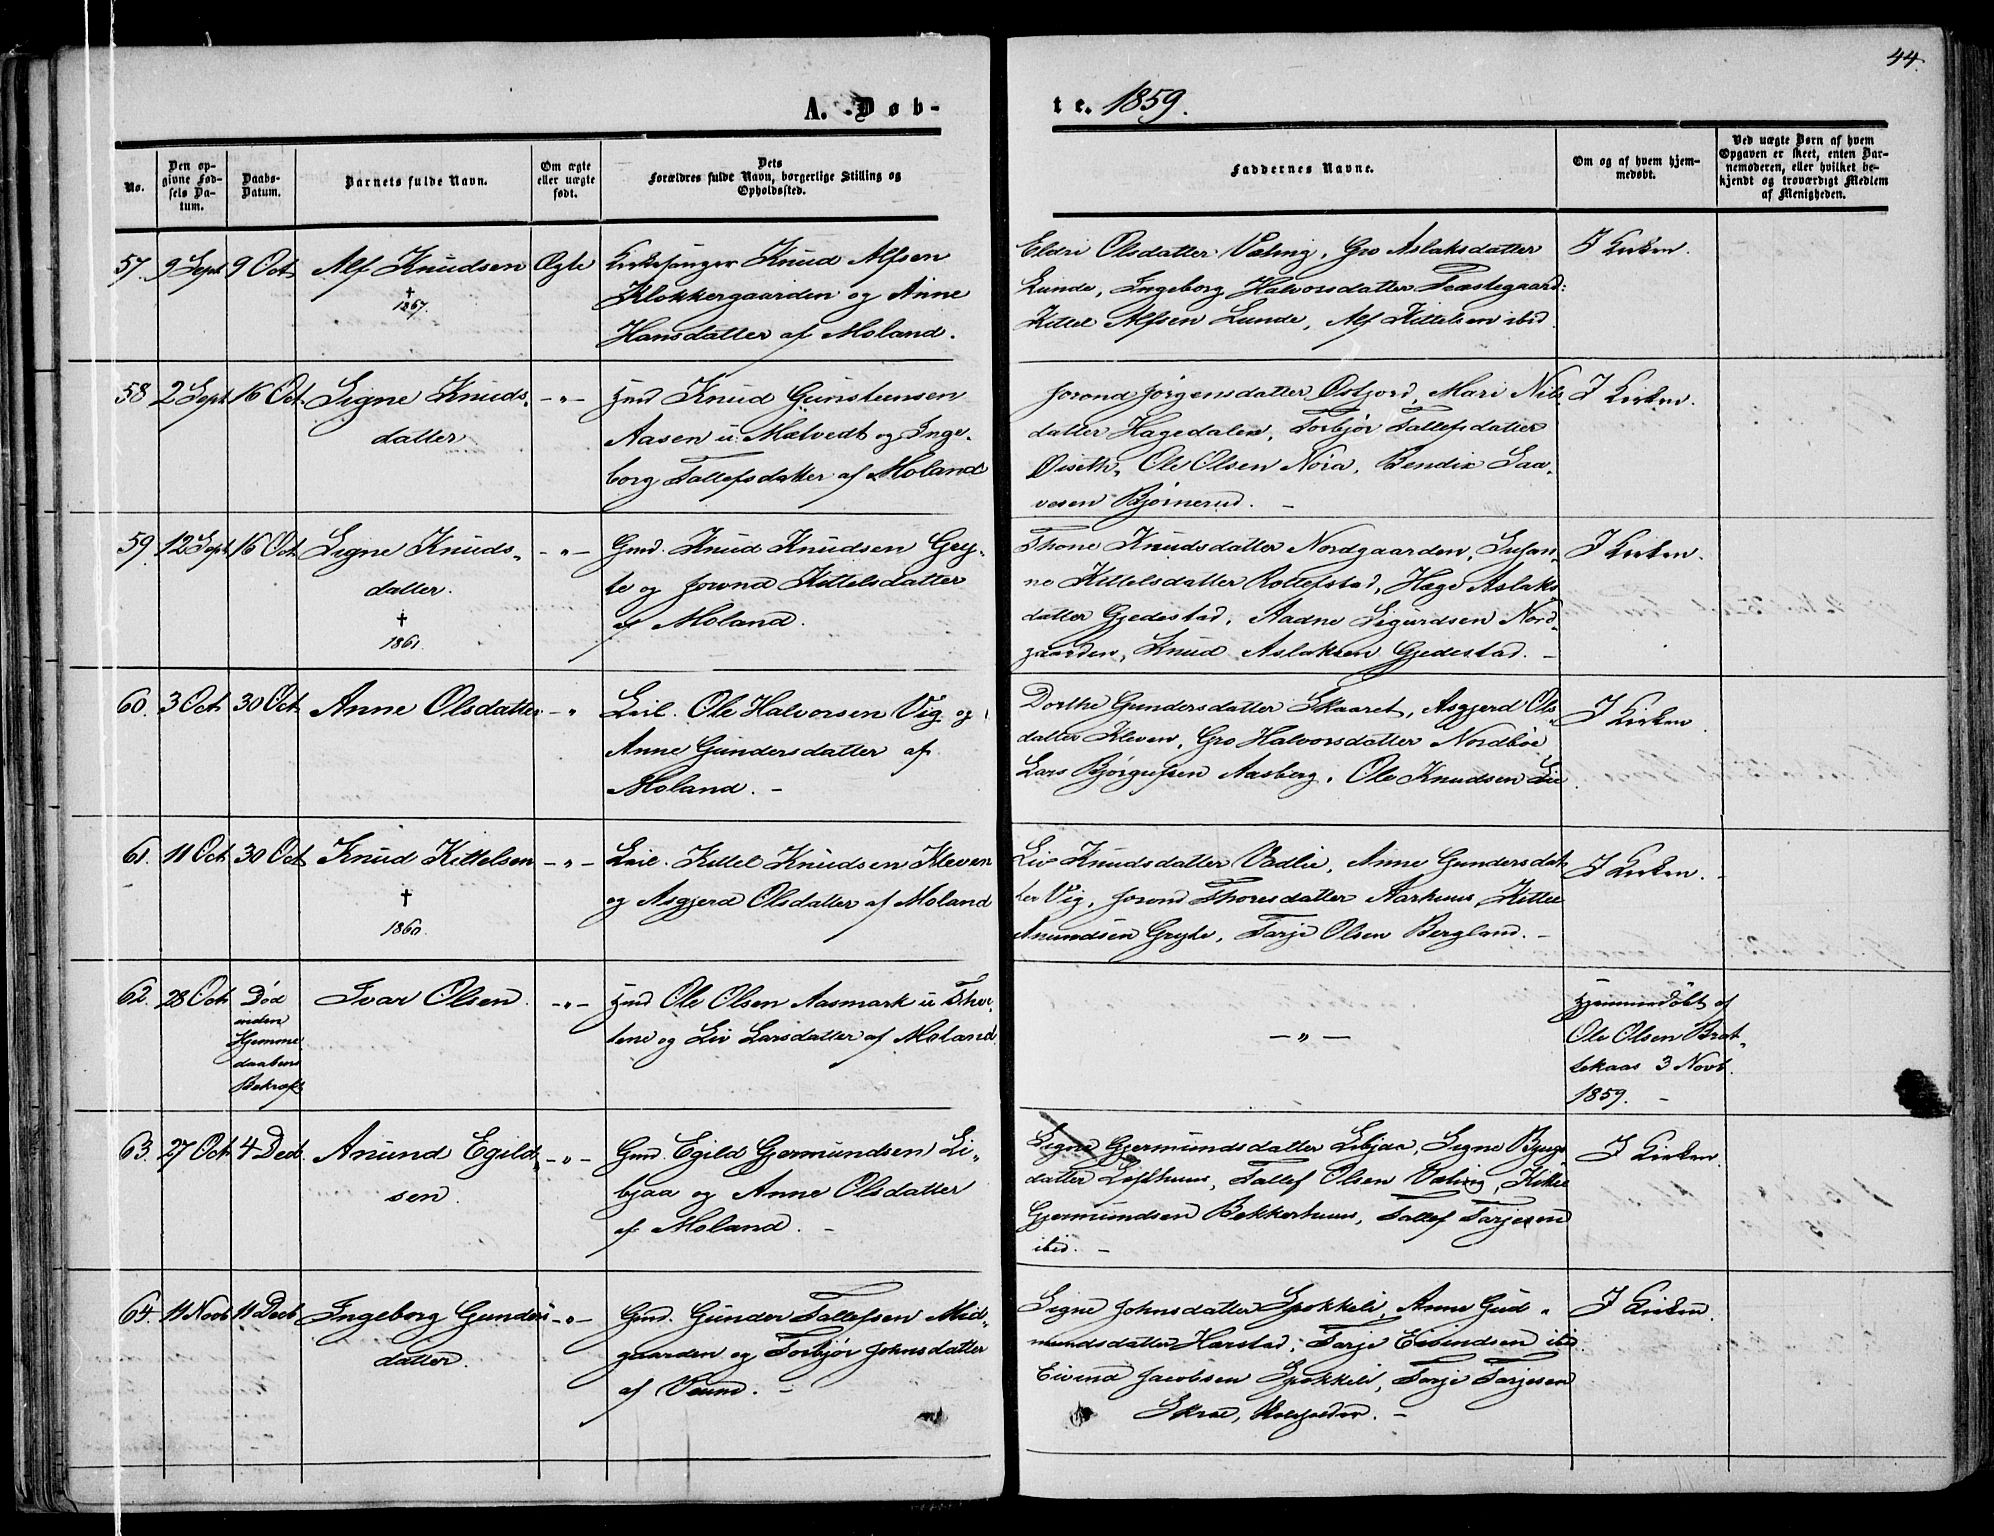 44.
A. Døb-
te. 1859.
No.
Den op-
givne Fød-
sels Da-
tum.
Daabs-
Datum.
Barnets fulde Navn.
Om ægte
eller uægte
født.
Dets
Forældres fulde Navn, borgerlige Stilling og
Opholdssted.
Faddernes Navne.
Om og af hvem hjem-
medøbt.
Ved uægte Børn af hvem
Opgaven er skeet, enten Bar-
nemoderen, eller hvilket be-
kjendt og troværdigt Medlem
af Menigheden.
57. 9 Sept 9 Oct. Alf Knudsen Ægte Kirkesanger Knud Alfsen
† Klokkergaarden og Anne
1867. Hansdatter af Moland.
Eldri Olsdatter Væting, Gro Aslaksdatter
Lunde, Ingeborg Halvorsdatter Præstegaard:
Kittel Alfsen Lunde, Alf Kittelsen ibid.
I Kirken.
58 2 Sept 16 Oct. Signe Knuds- -"- Hmd Knud Gunstensen
datter Aasen u: Mælvedt og Inge-
borg Tallefsdatter af Moland
Jorond Jørgensdatter Østjord, Mari Nils-
datter Hagedalen, Torbjør Tallefsdatter
Øiseth, Ole Olsen Nora, Bendix Saa-
vesen Bjørnerud. -
I Kirken.
59. 12 Sept 16 Oct. Signe Knuds- -"- Gmd. Knud Knudsen Gry-
datter. te og Jorond Kittelsdatter
† af Moland.
1861.
Thone Knudsdatter Nordgaarden, Susan-
ne Kittelsdatter Rollefstad, Hæge Aslaks-
datter Gjedestad, Aadne Sigurdsen Nord-
gaarden, Knud Aslaksen Gjedestad. -
I Kirken.
60. 3 Oct. 30 Oct. Anne Olsdatter -"- Leil. Ole Halvorsen Vig og
Anne Gundersdatter af
Moland. -
Dorthe Gundersdatter Skaaret, Asgjerd Ols-
datter Kleven, Gro Halvorsdatter Nordbøe
Lars Bjørgufsen Aasberg, Ole Knudsen Lie.
I Kirken.
61. 11 Oct. 30 Oct. Knud Kittelsen -"- Leil. Kittel Knudsen Kleven
† og Asgjerd Olsdatter af Moland
1860.
Liv Knudsdatter Vadlie, Anne Gundersdat-
ter Vig, Jorond Thoresdatter Aarhuus, Kittel
Anundsen Gryte, Tarje Olsen Bergland. -
I Kirken.
62. 28 Oct. Død Ivar Olsen. -"- Hmd Ole Olsen Aasmark u:
inden
Hjemme
daabens
Bekræft
og Liv Larsdatter af Moland.
-"-
Hjemmedøbt af
Ole Olsen Brat-
tekaas 3 Novb.
1859. -
63. 27 Oct. 4 Dec. Anund Egild- -"- Gmd. Egild Gjermundsen Li-
sen. bjaa og Anne Olsdatter
af Moland. -
Signe Gjermundsdatter Libjaa, Signe
datter Lofthuus, Tallef Olsen Væting, Kittel
Gjermundsen Bekkerhuus, Tallef Tarjesen
ibid. -
I Kirken.
64. 11 Novb 11 Decb Ingeborg Gunders -"- Gmd. Gunder Tallefsen Mid-
datter. gaarden og Torbjør Johnsdatter
af Veum. -
Signe Johnsdatter Spokkeli, Anne Gud-
mundsdatter Harstad, Tarje Eivindsen ibid.
Eivind Jacobsen Spokkeli, Tarje Tarjesen
Skræ,
I Kirken.